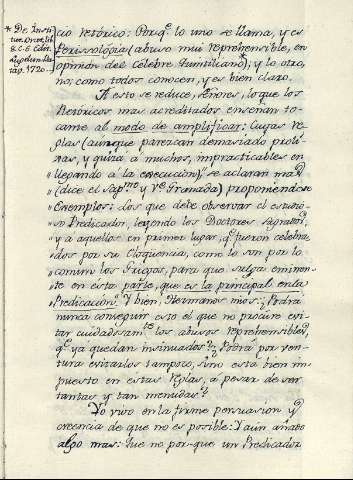 * De Insti-
tut. Orat. lib.
8. C. 6. Edon.
Lugdun. Ba-
tav. 1720.
cio Retórico: Porqᵉ lo uno se llama, y es
Perissológia (abuso mui reprehensible, en
opinion del célebre Quintiliano*); y lo otro,
no; como todos conocen, y es bien claro.
A esto se reduce, Señores, lo que los
Retóricos mas acreditados enseñan to-
cante al modo de amplificar: Cuyas re-
glas (aunque parezcan demasiado proli-
xas, y quiza a muchos, impracticables en
llegando a la execucion) "se aclaran mas
" (dice el Sapᵐᵒ y Vᵉ Granada) proponiendose
" exemplos: los que debe observar el estudio-
" so Predicador, leyendo los Doctores Sagrados,
" y a aquellos en primer lugar, qᵉ fueron celebra-
" dos por su Eloquencia, como lo son por lo
" comun los Griegos, para que salga eminen-
" te en esta parte, que es la principal en la
" Predicacion." Y bien, Hermanos mios: ¿Podrá
nunca conseguir esto el que no procure evi-
tar cuidadosamᵗᵉ los abusos reprehensibles,
qᵉ ya quedan insinuados? ¿Podrá por ven-
tura evitarlos tampoco, sino está bien im-
puesto en estas Reglas, a pesar de ser
tantas y tan menudas?
Yo vivo en la firme persuasion y
creencia de que no es posible: Y aun añado
algo mas: Que no por-que un Predicador